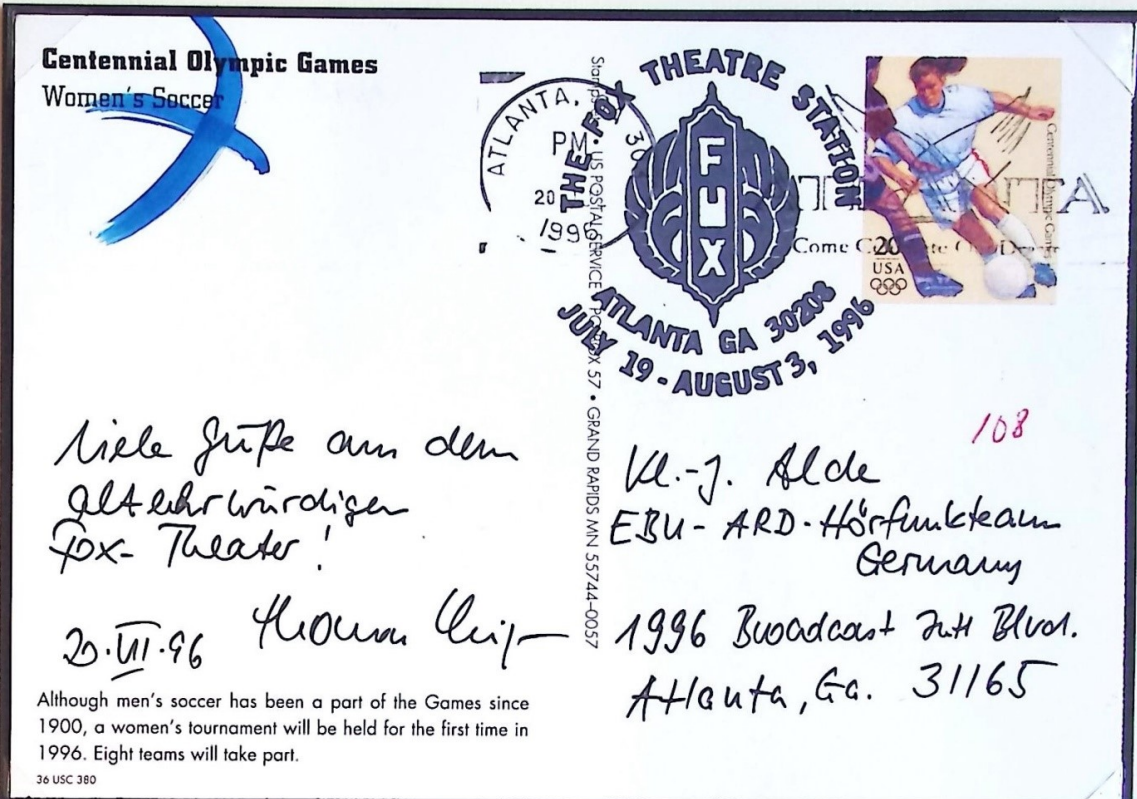 Centennial Olympic Games
Women's Soccer
ATLANTA,
PM
20
1996
30
THE FOX THEATRE STATION
FOX
ATLANTA GA 30208
JULY 19 - AUGUST 3, 1996
Come
Centennial Olympic Games
20
USA
US POSTAL SERVICE • PO BOX 57 • GRAND RAPIDS MN 55744-0057
108
Viele Grüße aus dem
altehrwürdigen
Fox- Theater!
20.VII.96 Thomas
Kl.-J. Alde
EBU- ARD-Hörfunkteam
Germany
1996 Broadcast Blvd.
Atlanta, Ga. 31165
Although men's soccer has been a part of the Games since
1900, a women's tournament will be held for the first time in
1996. Eight teams will take part.
36 USC 380